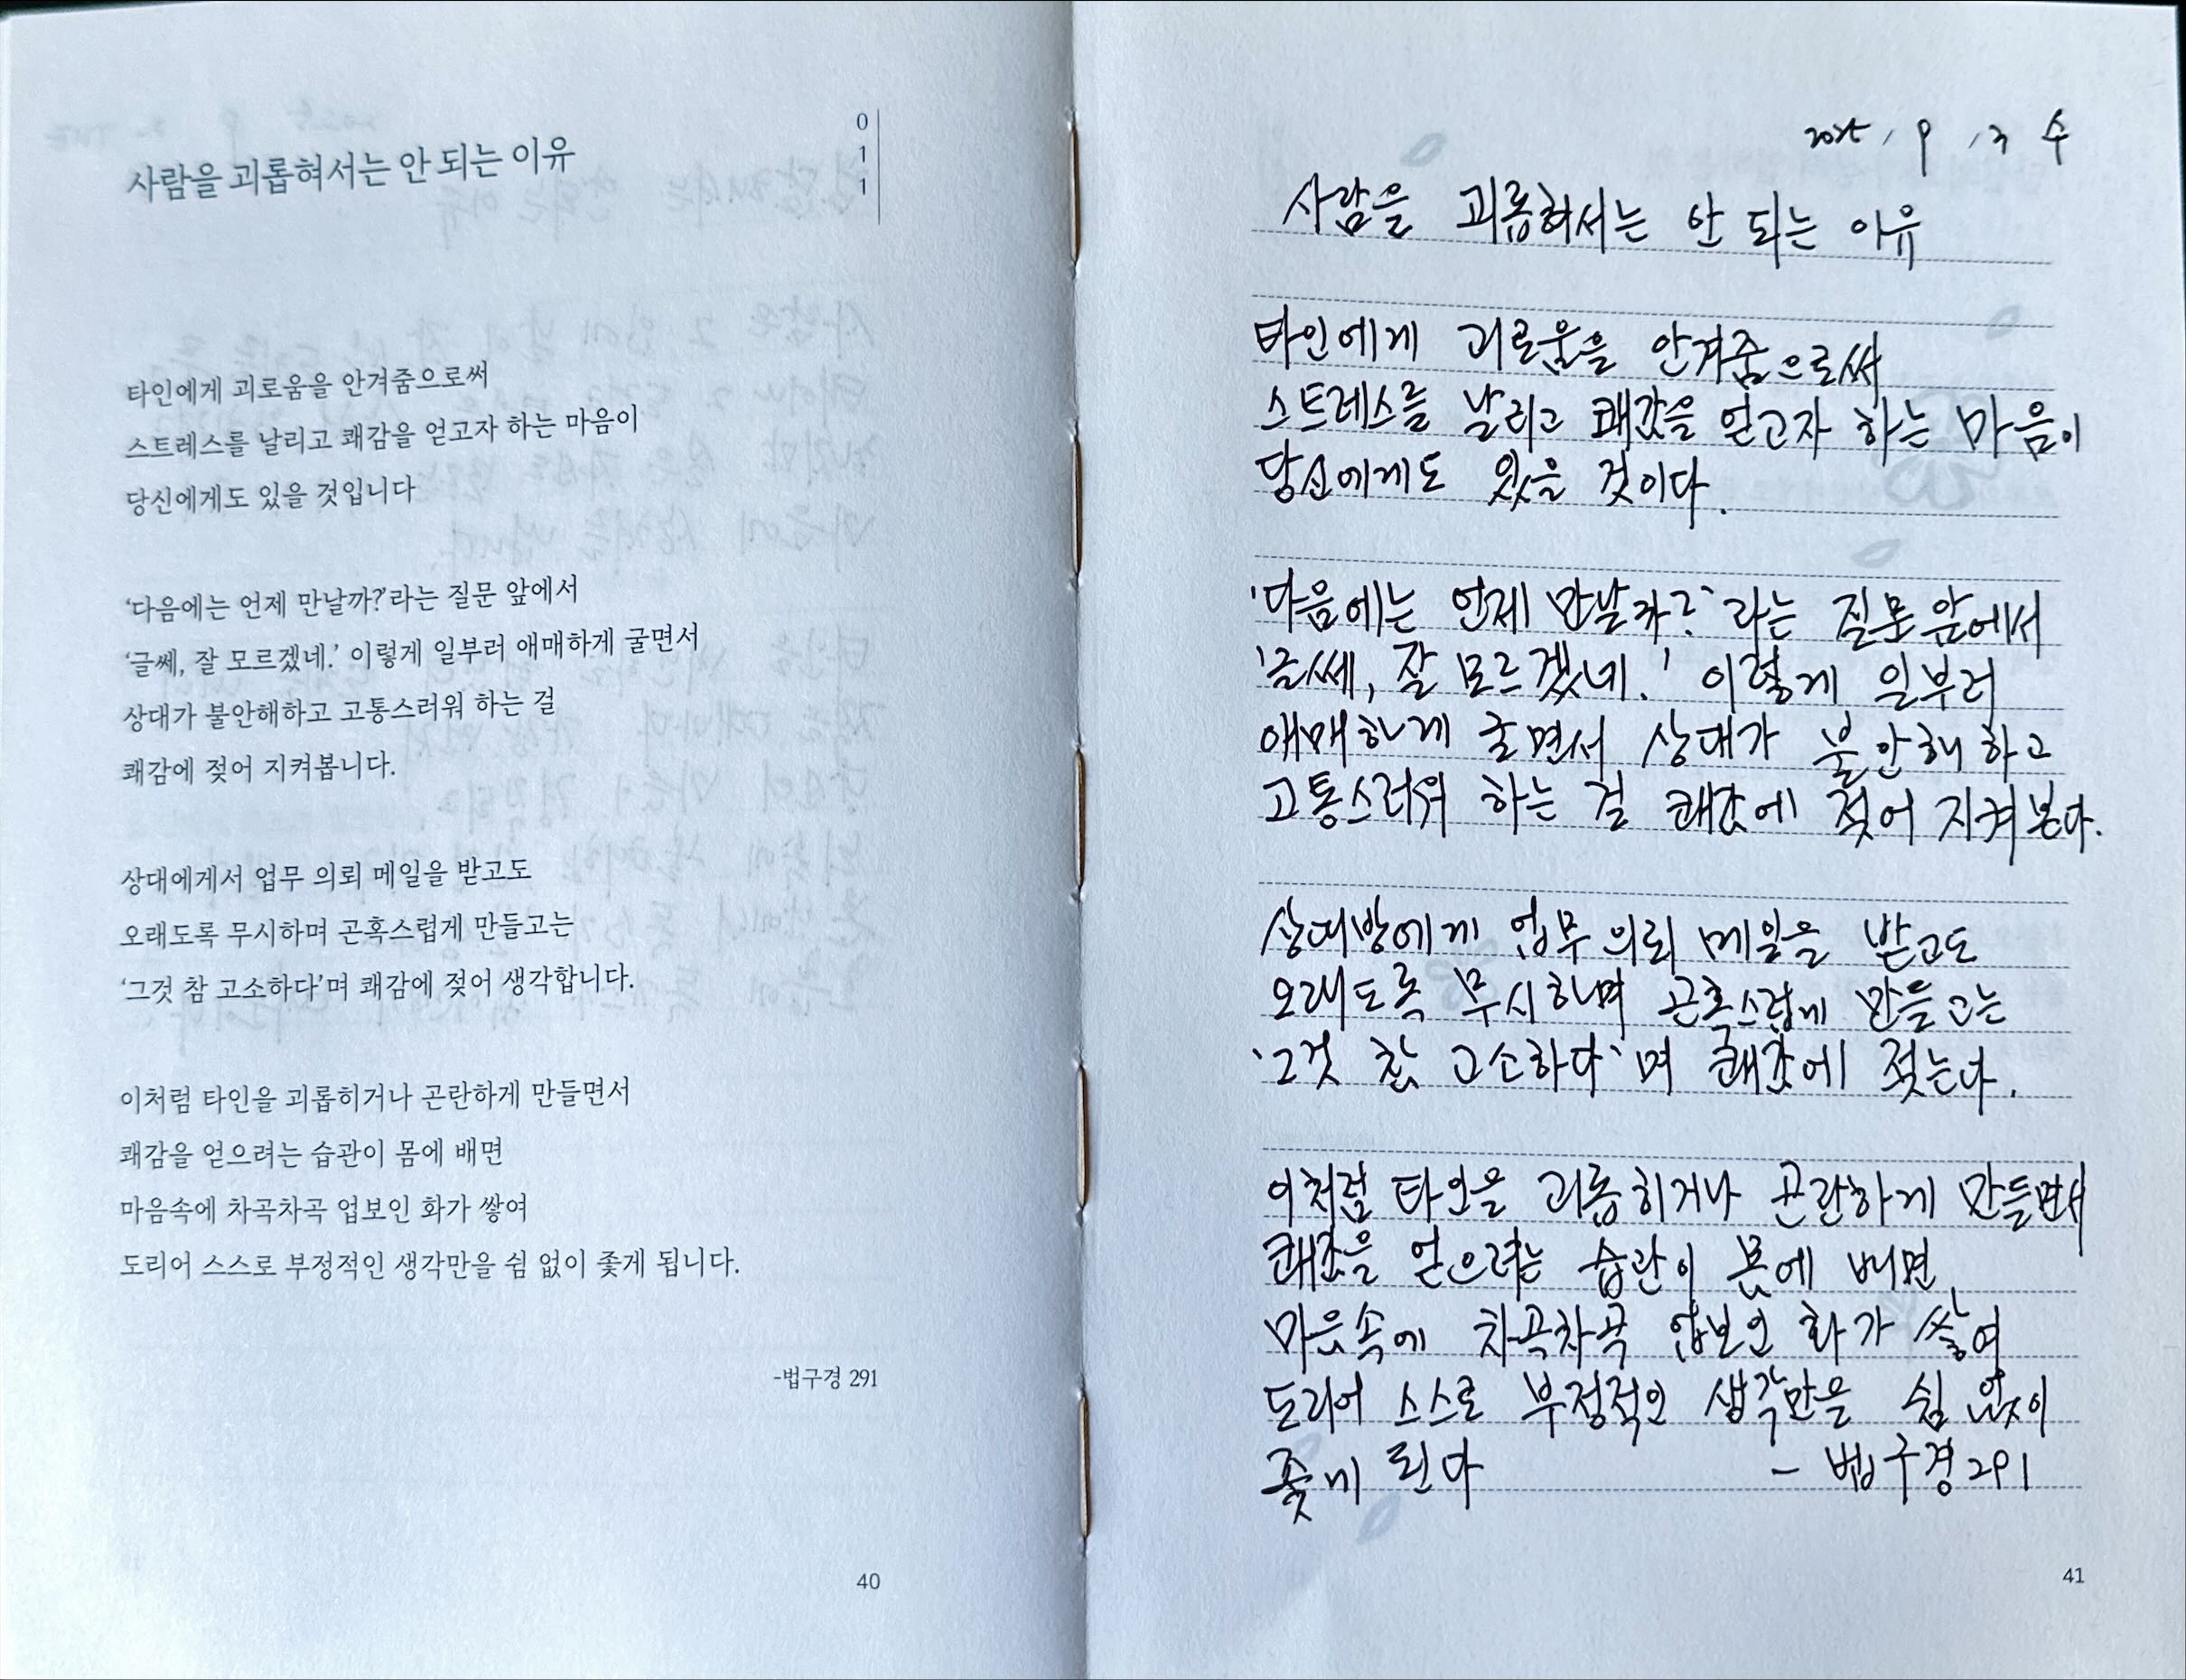 사람을 괴롭혀서는 안 되는 이유
0
1
1
타인에게 괴로움을 안겨줌으로써
스트레스를 날리고 쾌감을 얻고자 하는 마음이
당신에게도 있을 것입니다
‘다음에는 언제 만날까?’라는 질문 앞에서
‘글쎄, 잘 모르겠네.’ 이렇게 일부러 애매하게 굴면서
상대가 불안해하고 고통스러워 하는 걸
쾌감에 젖어 지켜봅니다.
상대에게서 업무 의뢰 메일을 받고도
오래도록 무시하며 곤혹스럽게 만들고는
‘그것 참 고소하다’며 쾌감에 젖어 생각합니다.
이처럼 타인을 괴롭히거나 곤란하게 만들면서
쾌감을 얻으려는 습관이 몸에 배면
마음속에 차곡차곡 업보인 화가 쌓여
도리어 스스로 부정적인 생각만을 쉼 없이 좇게 됩니다.
-법구경 291
40
2025. 9. 3 수
사람을 괴롭혀서는 안 되는 이유
타인에게 괴로움을 안겨줌으로써
스트레스를 날리고 쾌감을 얻고자 하는 마음이
당신에게도 있을 것이다.
'다음에는 언제 만날까?' 라는 질문 앞에서
'글쎄, 잘 모르겠네.' 이렇게 일부러
애매하게 굴면서 상대가 불안해 하고
고통스러워 하는 걸 쾌감에 젖어 지켜본다.
상대방에게 업무 의뢰 메일을 받고도
오래도록 무시하며 곤혹스럽게 만들고는
'그것 참 고소하다'며 쾌감에 젖는다.
이처럼 타인을 괴롭히거나 곤란하게 만들면서
쾌감을 얻으려는 습관이 몸에 배면
마음속에 차곡차곡 업보인 화가 쌓여
도리어 스스로 부정적인 생각만을 쉼 없이
좇게 된다 - 법구경 291
41